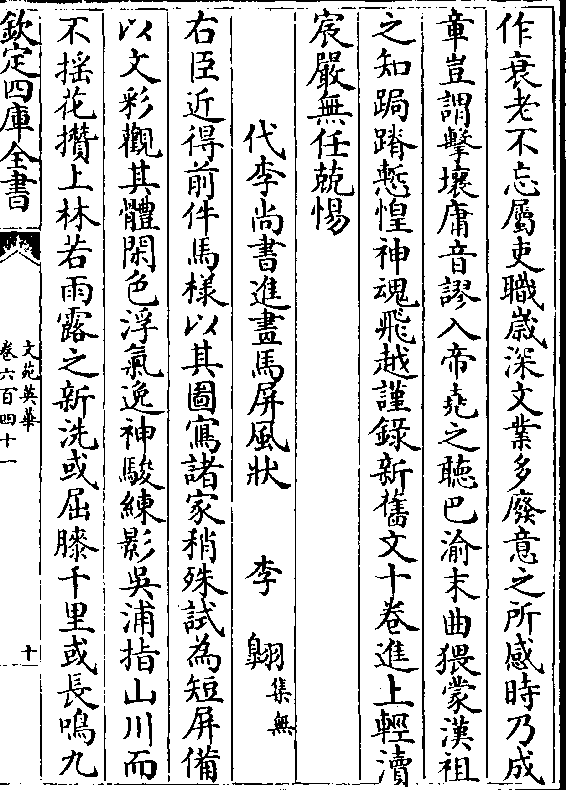 作衰老不忘屬吏職嵗深文業多廢意之所感時乃成
章豈謂擊壤庸音謬入帝堯之聽巴渝末曲猥蒙漢祖
之知跼蹐慙惶神魂飛越謹録新舊文十卷進上輕瀆
宸嚴無任兢惕
代李尚書進畫馬屏風狀 李翺集無
右臣近得前件馬様以其圖寫諸家稍殊試為短屏備
以文彩觀其體閑色浮氣逸神駿練影吳浦指山川而
不揺花攢上林若雨露之新洗或屈膝千里或長鳴九
欽定四庫全書
文苑英華
卷六百四十一
十